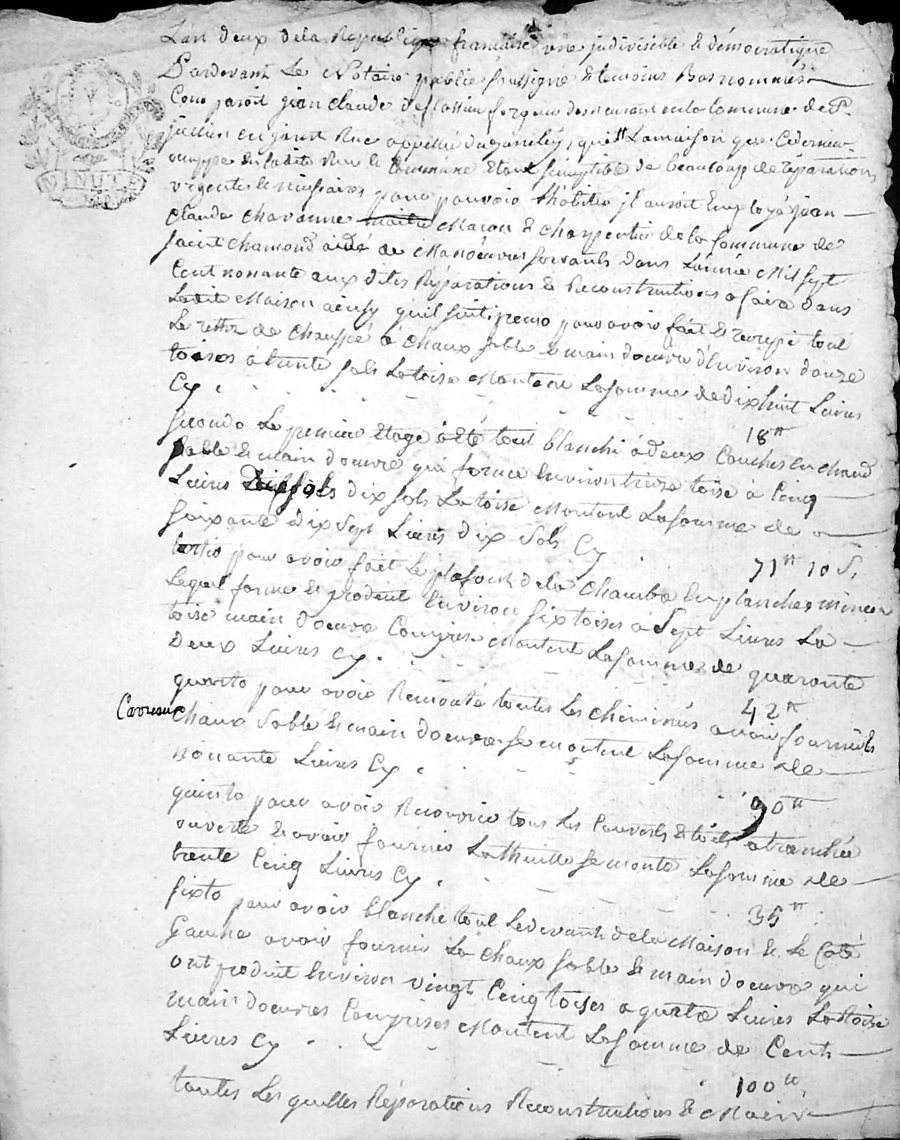 L'an deux dela Republique francaise une indivisible & démocratique
Pardevant Le Notaire public Soussigné & temoins Bas nommés
Comparoit jean claude deflassieu forgeur demeurant en la Commune de St
julien en jarret Rue appellée du ganeley, que La maison que Ce dernier
occuppe en ladite Rue & Commune étant susceptible de beaucoup de réparations
urgentes & nécessaires pour pouvoir Lhabiter jl auroit Employé jean
claude chavanne Macon & charpentier de la Commune de
saint chamond aidé de Manoeuvres servants dans L'année Mil sept
Cent nonante aux dites Réparations & Reconstructions a faire dans
Ladite Maison ainsy quil suit, primo pour avoir fait & crepi tout
Le rettz de chaussée à chaux sable & main doeuvre d'Environ douze
toises à trente sols La toise Montent La somme de dix huit Livres
Cy . . . . . 18tt
secondo Le premier étage à été tout blanchi à deux Couches En chaud
sable & main doeuvre qui forme Environ treize toise à Cinq
Livres dix sols La toise Montent La somme de
soixante dix sept Livres dix sols Cy . 71tt 10 S.
tertio pour avoir fait Le plafond de la chambre En planches minces
Lequel forme & produit Environ six toises à sept Livres La
toise main doeuvre Comprise Montent La somme de quarante
Deux Livres Cy . 42tt
quarto pour avoir Remonté toutes Les cheminés avoir fourni les
Carreaux chaux sable & main doeuvre se montent La somme de
nonante Livres Cy . 90tt
quinto pour avoir Recouvrir tous Les Couverts & toits a tranchée
ouverte & avoir fournie La thuille se monte La somme de
trente Cinq Livres Cy . 35tt
sixto pour avoir blanchi tout Le devant de la Maison & Le Coté
Gauche avoir fournie La chaux sable & main doeuvre qui
ont produit Environ vingt Cinq toises a quatre Livres La toise
main doeuvres Comprises Montent La somme de Cents
Livres Cy . . . 100tt
toutes Les quelles Réparations Reconstructions & Main
MINUTE